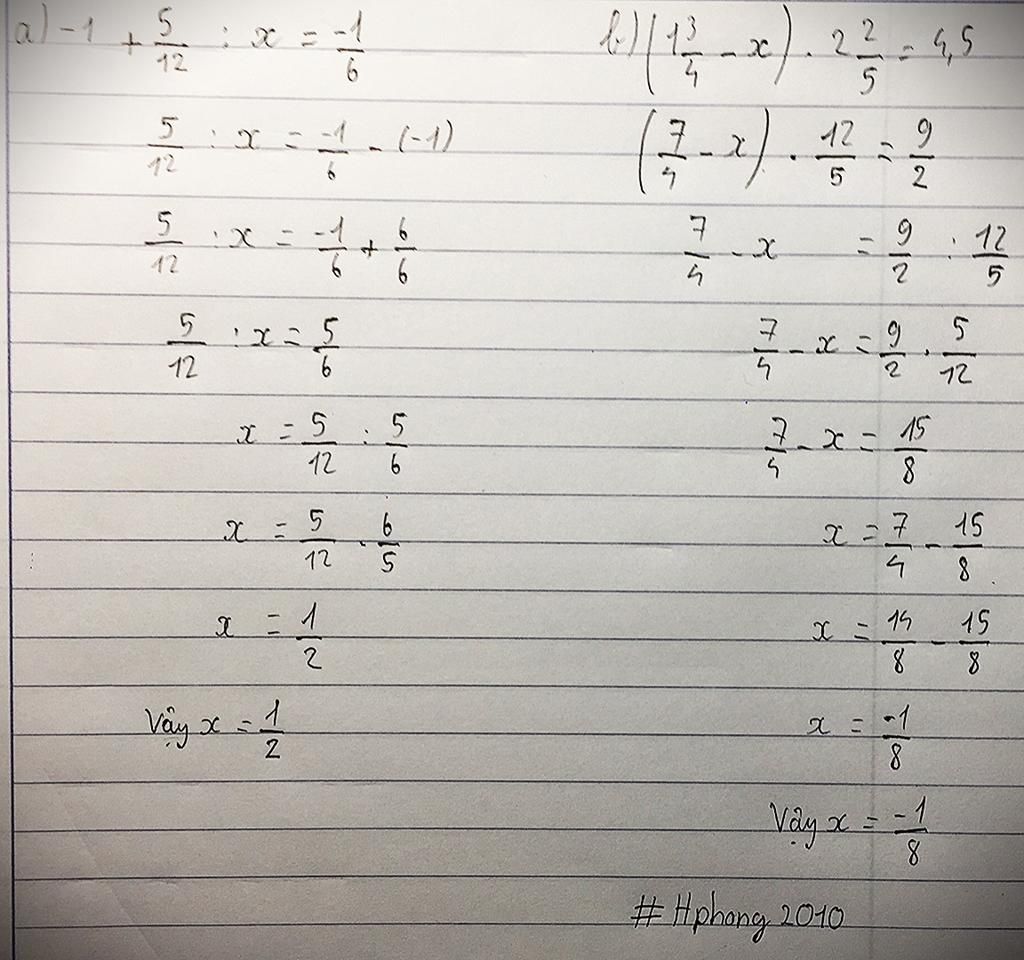 a) -1 + 5/12 : x = -1/6
5/12 : x = -1/6 - (-1)
5/12 : x = -1/6 + 6/6
5/12 : x = 5/6
x = 5/12 : 5/6
x = 5/12 . 6/5
x = 1/2
Vậy x = 1/2
b) (1 3/4 - x) . 2 2/5 = 4,5
(7/4 - x) . 12/5 = 9/2
7/4 - x = 9/2 : 12/5
7/4 - x = 9/2 . 5/12
7/4 - x = 15/8
x = 7/4 - 15/8
x = 14/8 - 15/8
x = -1/8
Vậy x = -1/8
# Hphong 2010